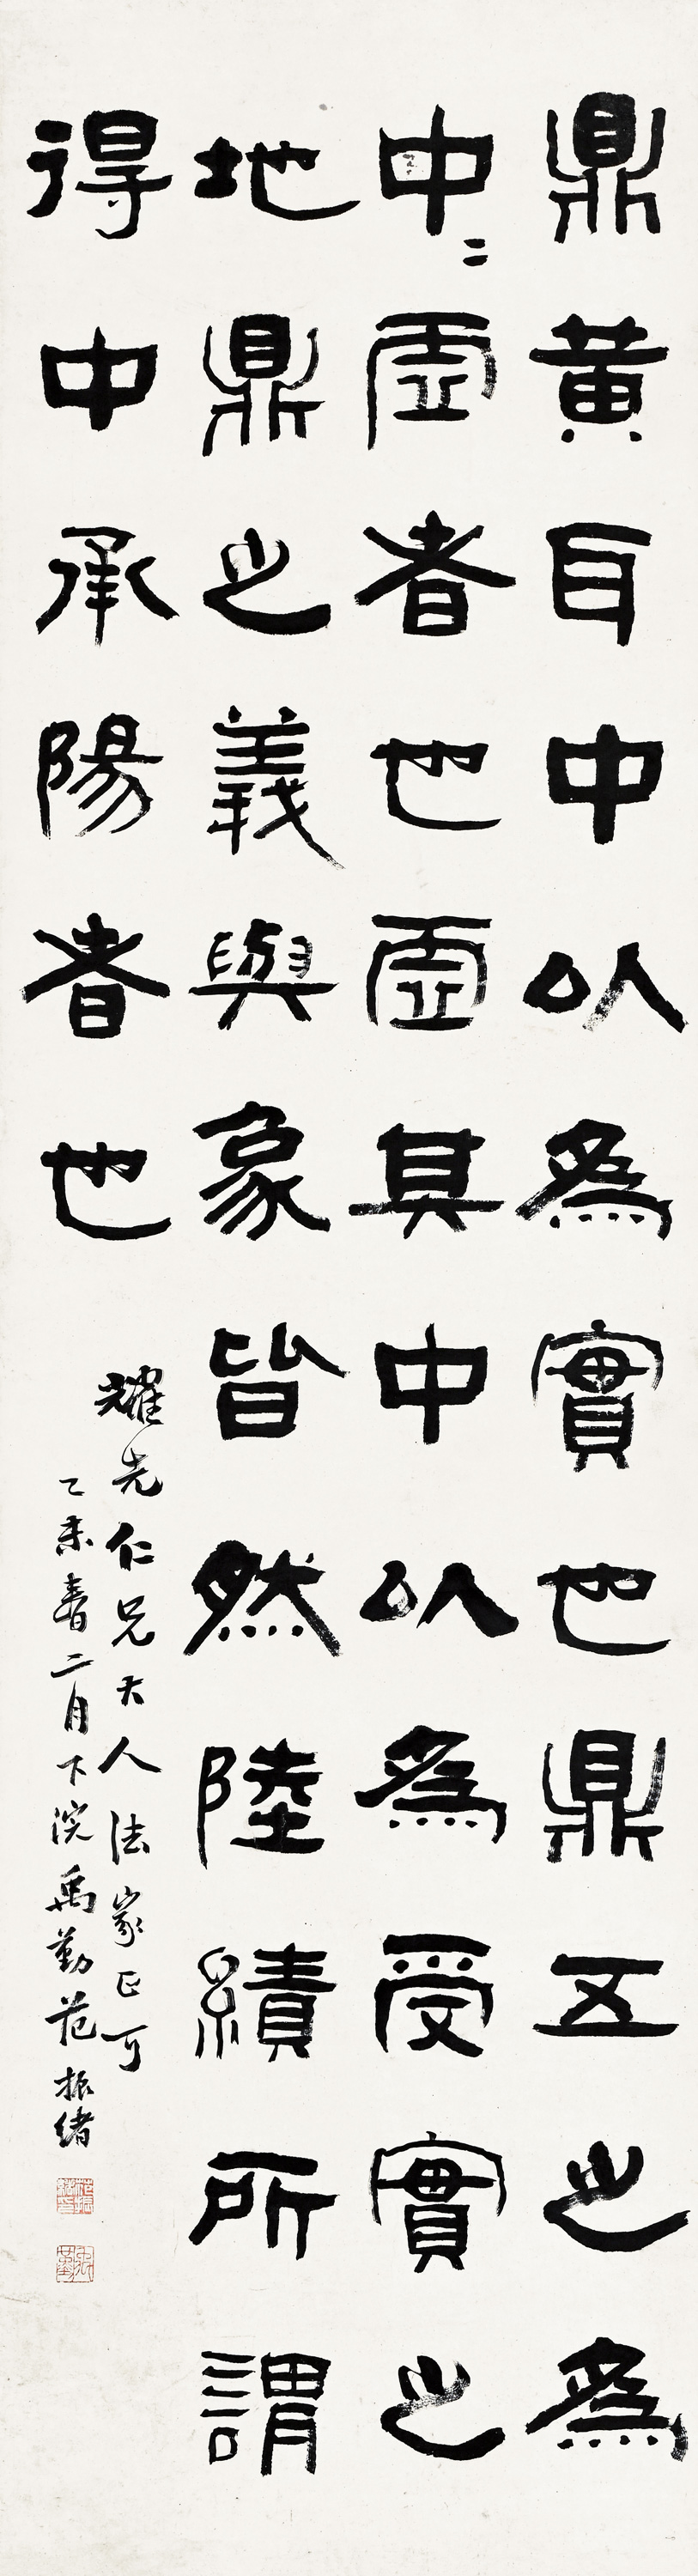 鼎黃耳中以為實也鼎五之為
中〻虛者也虛其中以為受實之
地鼎之義與象皆然陸績所謂
得中承陽者也
耀先仁兄大人法家正可
乙未春二月下浣禹勤范振緒